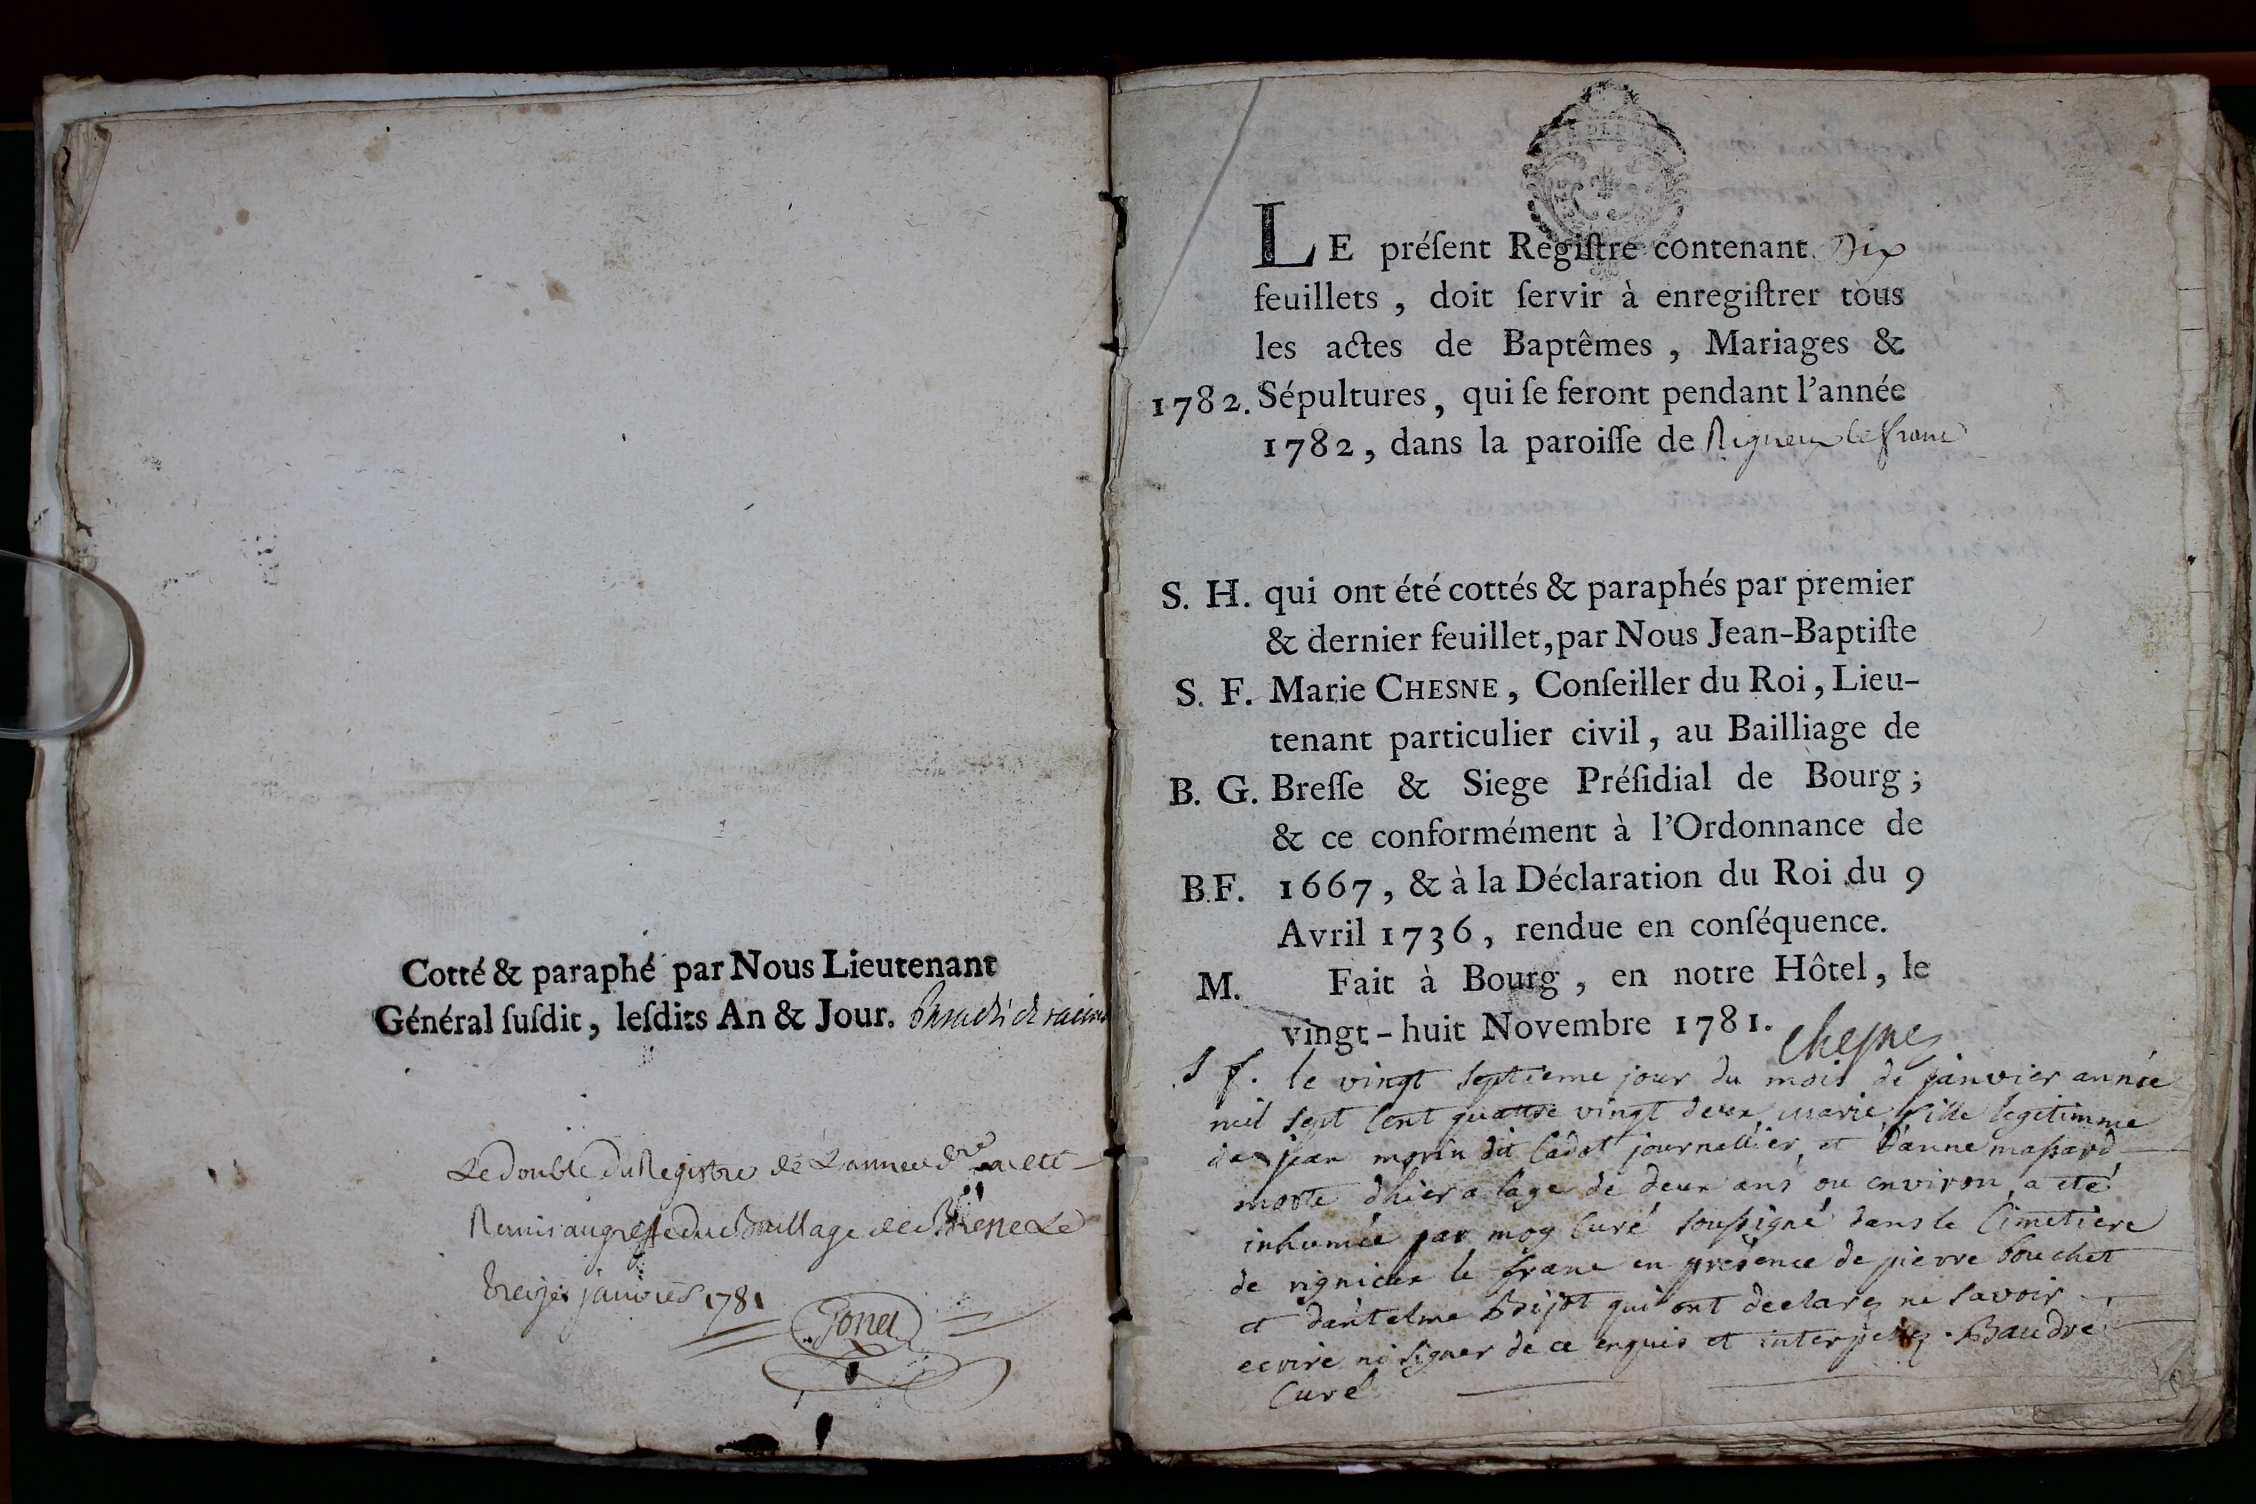 Cotté & paraphé par Nous Lieutenant
Général ſuſdit, leſdits An & Jour.
Le double du Registre de L'année d.re a ete
Remis au greffe du Baillage de Bresse Le
treize janvier 1781
Gonet
LE préſent Regiſtre contenant Dix
feuillets, doit ſervir à enregiſtrer tous
les actes de Baptêmes, Mariages &
1782. Sépultures, qui ſe feront pendant l'année
1782, dans la paroiſſe de Rigneux le franc
S. H. qui ont été cottés & paraphés par premier
& dernier feuillet, par Nous Jean-Baptiſte
S. F. Marie CHESNE, Conſeiller du Roi, Lieu-
tenant particulier civil, au Bailliage de
B. G. Breſſe & Siege Préſidial de Bourg;
& ce conformément à l'Ordonnance de
B.F. 1667, & à la Déclaration du Roi du 9
Avril 1736, rendue en conſéquence.
M. Fait à Bourg, en notre Hôtel, le
vingt-huit Novembre 1781.
Chesne
S f. le vingt septieme jour du mois de janvier année
mil sept cent quattre vingt deux marie fille legitimme
de jean morin dit Cadot journallier, et d'anne massard
morte d'hier a l'age de deux ans ou environ, a eté
inhumée par moy Curé soussigné dans le Cimetiere
de rignieux le franc en presence de pierre bouchet
et d'antelme Brijot qui ont declarez ne savoir
ecrire ni signer de ce enquis et interpellez. Baudré
Curé